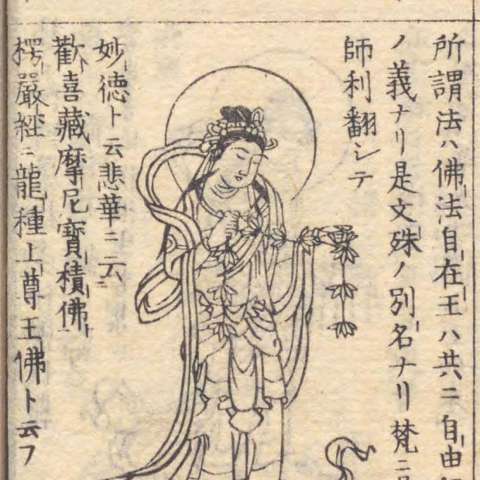 所謂法ハ佛法自在王ハ共ニ自由
ノ義ナリ是文殊ノ別名ナリ梵ニ
師利翻シテ
妙德ト云悲華ニ云
歡喜藏摩尼寶積佛
楞嚴經ニ龍種上尊王佛ト云フ